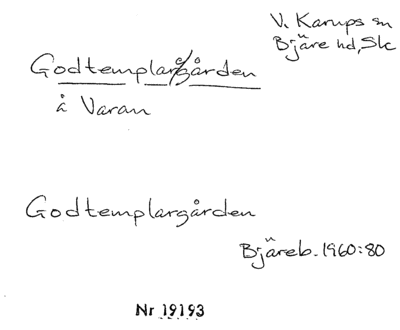 V. Karups sn
Bjäre hd, Sk
Godtemplargården
å Varan
Godtemplargården
Bjäreb. 1960:80
Nr 19193